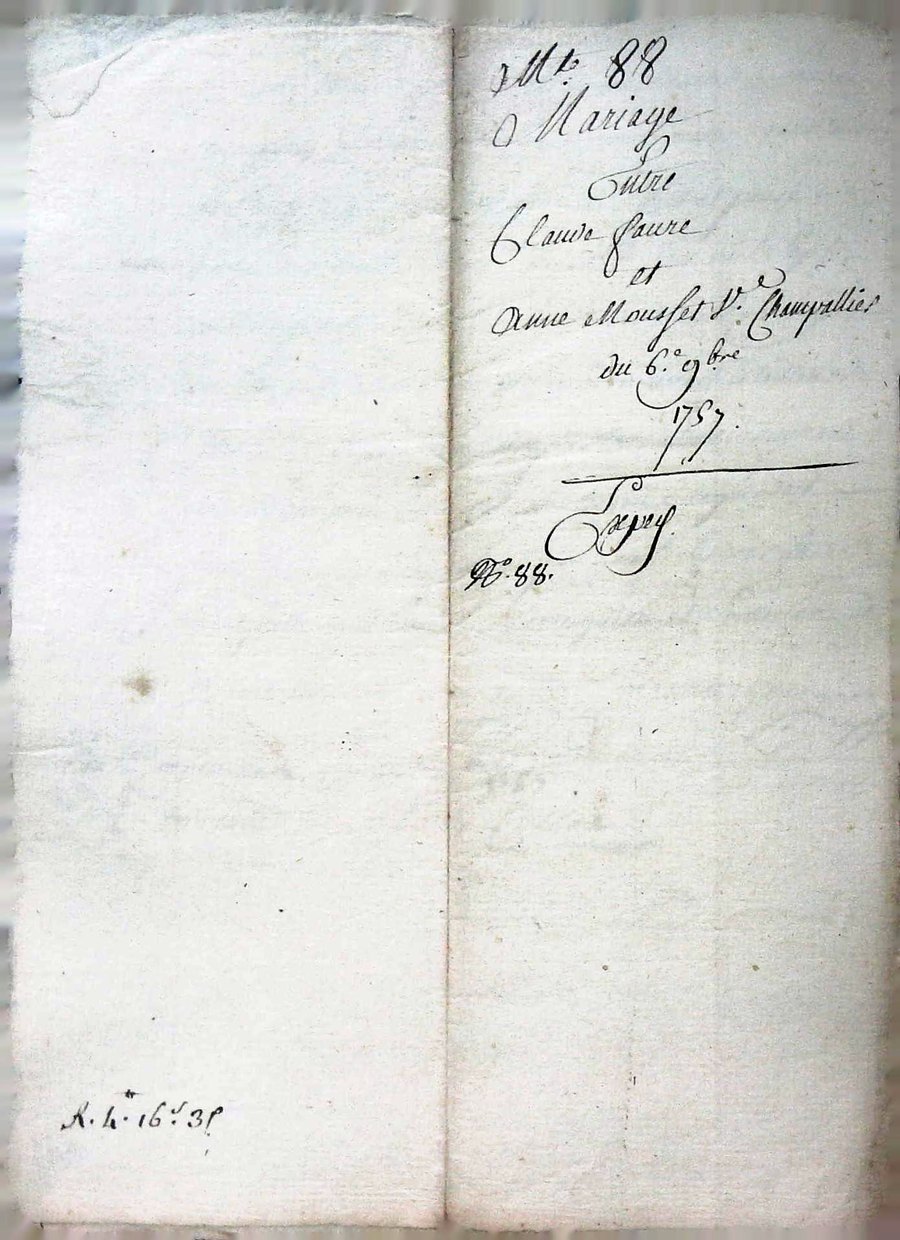 Mte 88
Mariage
Entre
Claude faure
et
Anne Mousset Ve. Champallier
du 6.e 9bre
1757.
Expers.
No. 88.
R. 4# 16s. 3d